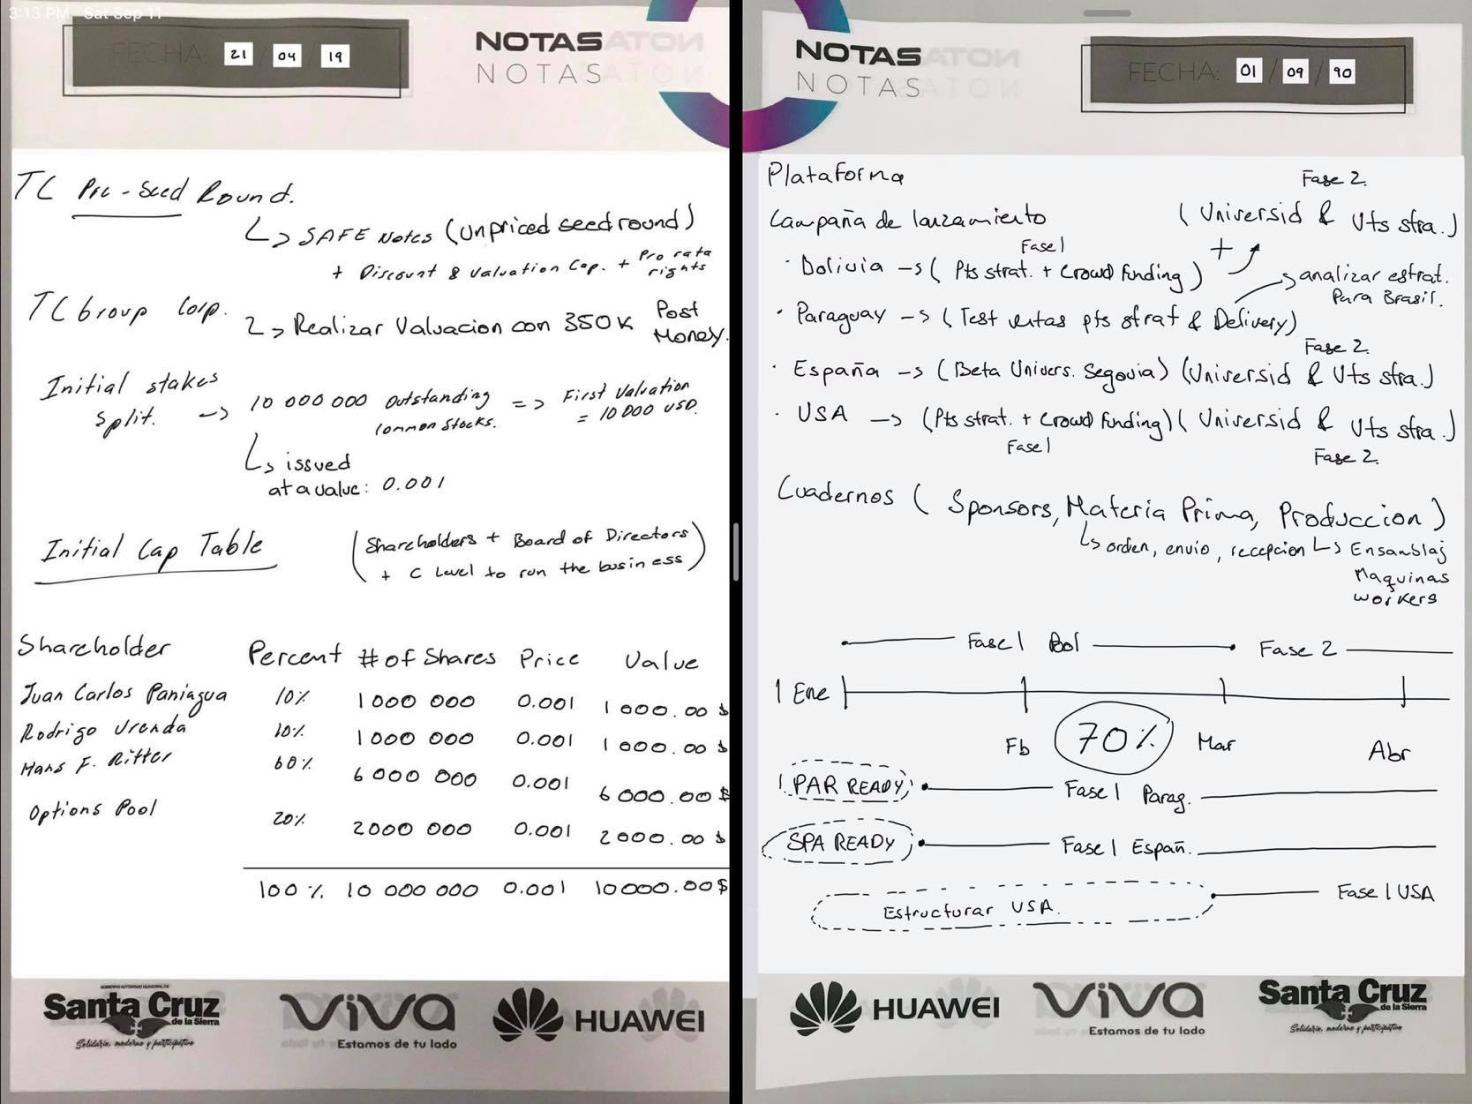 3:13 PM Sat Sep 11
FECHA 21 04 19
NOTAS
NOTAS
TC Pre-Seed Round.
↳ SAFE Notes (Unpriced seed round)
+ Discount & Valuation Cap. + Pro rata rights
TC Group Corp.
↳ Realizar Valuacion con 350K Post Money.
Initial stakes split. → 10 000 000 Outstanding Common Stocks. => First Valuation = 10 000 USD.
↳ issued
at a value: 0.001
Initial Cap Table
(Shareholders + Board of Directors
+ C Level to run the business)
Shareholder Percent # of Shares Price Value
Juan Carlos Paniagua 10% 1 000 000 0.001 1 000.00 $
Rodrigo Urenda 10% 1 000 000 0.001 1 000.00 $
Hans F. Ritter 60% 6 000 000 0.001 6 000.00 $
Options Pool 20% 2 000 000 0.001 2 000.00 $
100 % 10 000 000 0.001 10 000.00 $
Santa Cruz
de la Sierra
Solidaria, moderna y participativa
VIVA
Estamos de tu lado
HUAWEI
NOTAS
NOTAS
FECHA: 01 / 09 / 90
Plataforma
Fase 2.
Campaña de lanzamiento (Universid & Vts stra.)
Fase 1 +
· Bolivia → (Pts strat. + Crowd funding)
→ analizar estrat.
Para Brasil.
· Paraguay → (Test ventas pts strat & Delivery)
Fase 2.
· España → (Beta Univers. Segovia) (Universid & Vts stra.)
· USA → (Pts strat. + Crowd funding) (Universid & Vts stra.)
Fase 1 Fase 2.
Cuadernos (Sponsors, Materia Prima, Produccion)
↳ orden, envio, recepcion ↳ Ensamblaj
Maquinas
workers
Fase 1 Bol Fase 2
1 Ene
Fb 70% Mar Abr
PAR READY Fase 1 Parag.
SPA READY Fase 1 Españ.
Estructurar USA. Fase 1 USA
HUAWEI
VIVA
Estamos de tu lado
Santa Cruz
de la Sierra
Solidaria, moderna y participativa